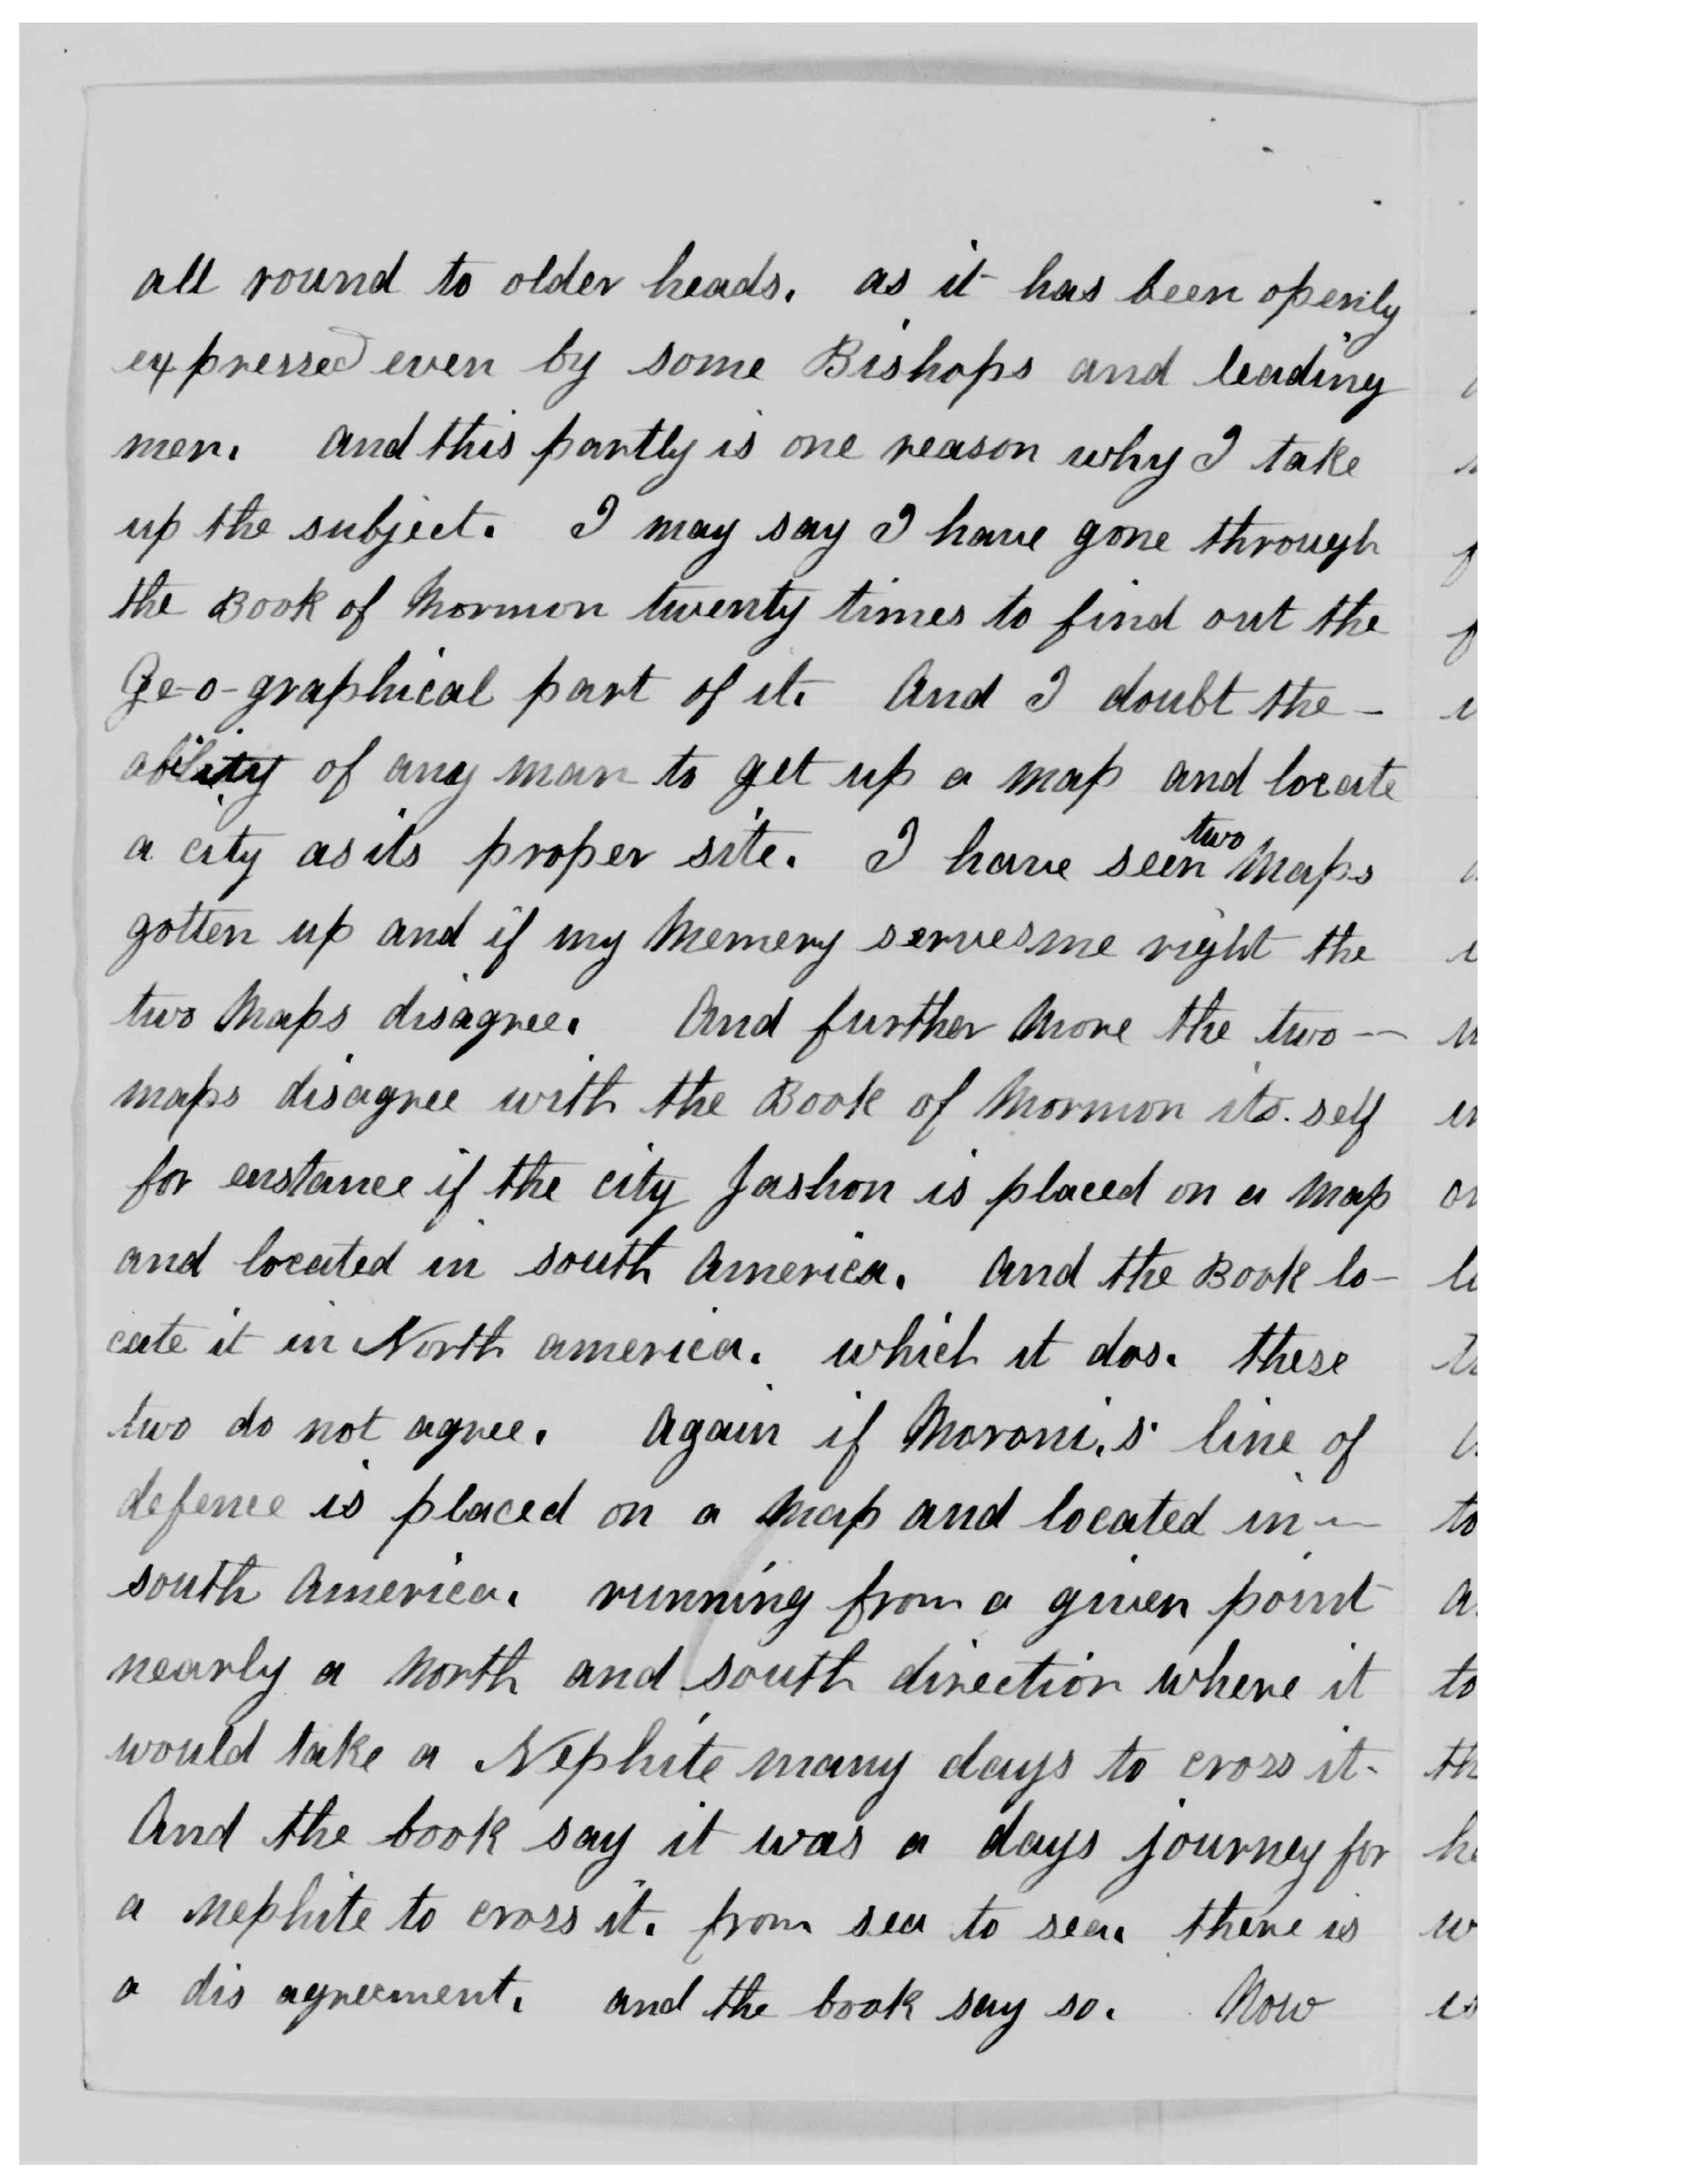 all round to older heads. as it has been openly
expressed even by some Bishops and leading
men. and this partly is one reason why I take
up the subject. I may say I have gone through
the Book of Mormon twenty times to find out the
Ge-o-graphical part of it. And I doubt the -
ability of any man to get up a map and locate
a city as its proper site. I have seen two Maps
gotten up and if my Memery serves me right the
two Maps disagree. And further More the two -
maps disagree with the Book of Mormon its. self
for enstance if the city Jashon is placed on a Map
and located in south America. And the Book lo-
cate it in North america. which it dos. these
two do not agree. Again if Moroni,s line of
defence is placed on a Map and located in -
south America. running from a given point
nearly a North and south direction where it
would take a Nephite many days to cross it.
And the book say it was a days journey for
a nephite to cross it. from sea to sea. there is
a dis agreement. and the book say so. Now